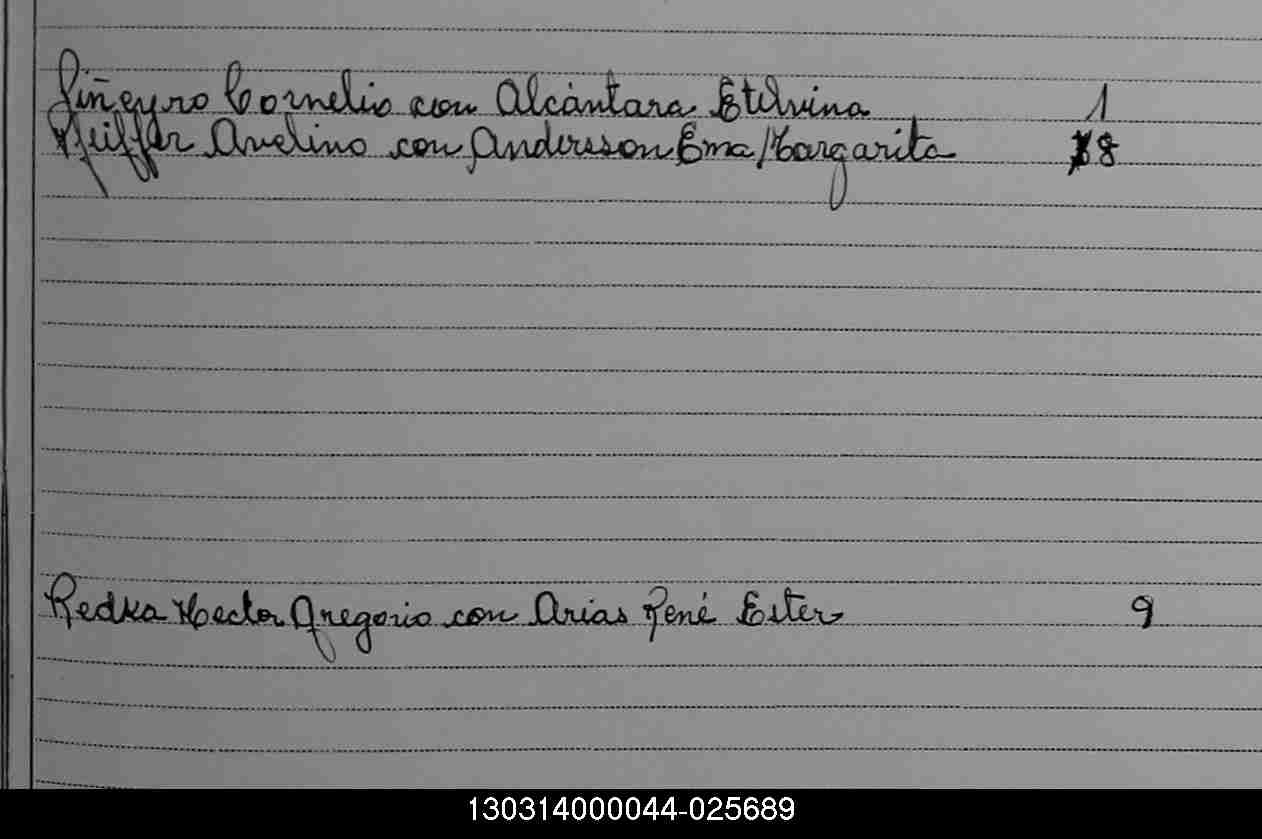 Piñeyro Cornelio con Alcántara Etelvina 1
Pfeiffer Avelino con Andersson Ema Margarita 8
Redka Hector Gregorio con Arias René Ester 9
130314000044-025689